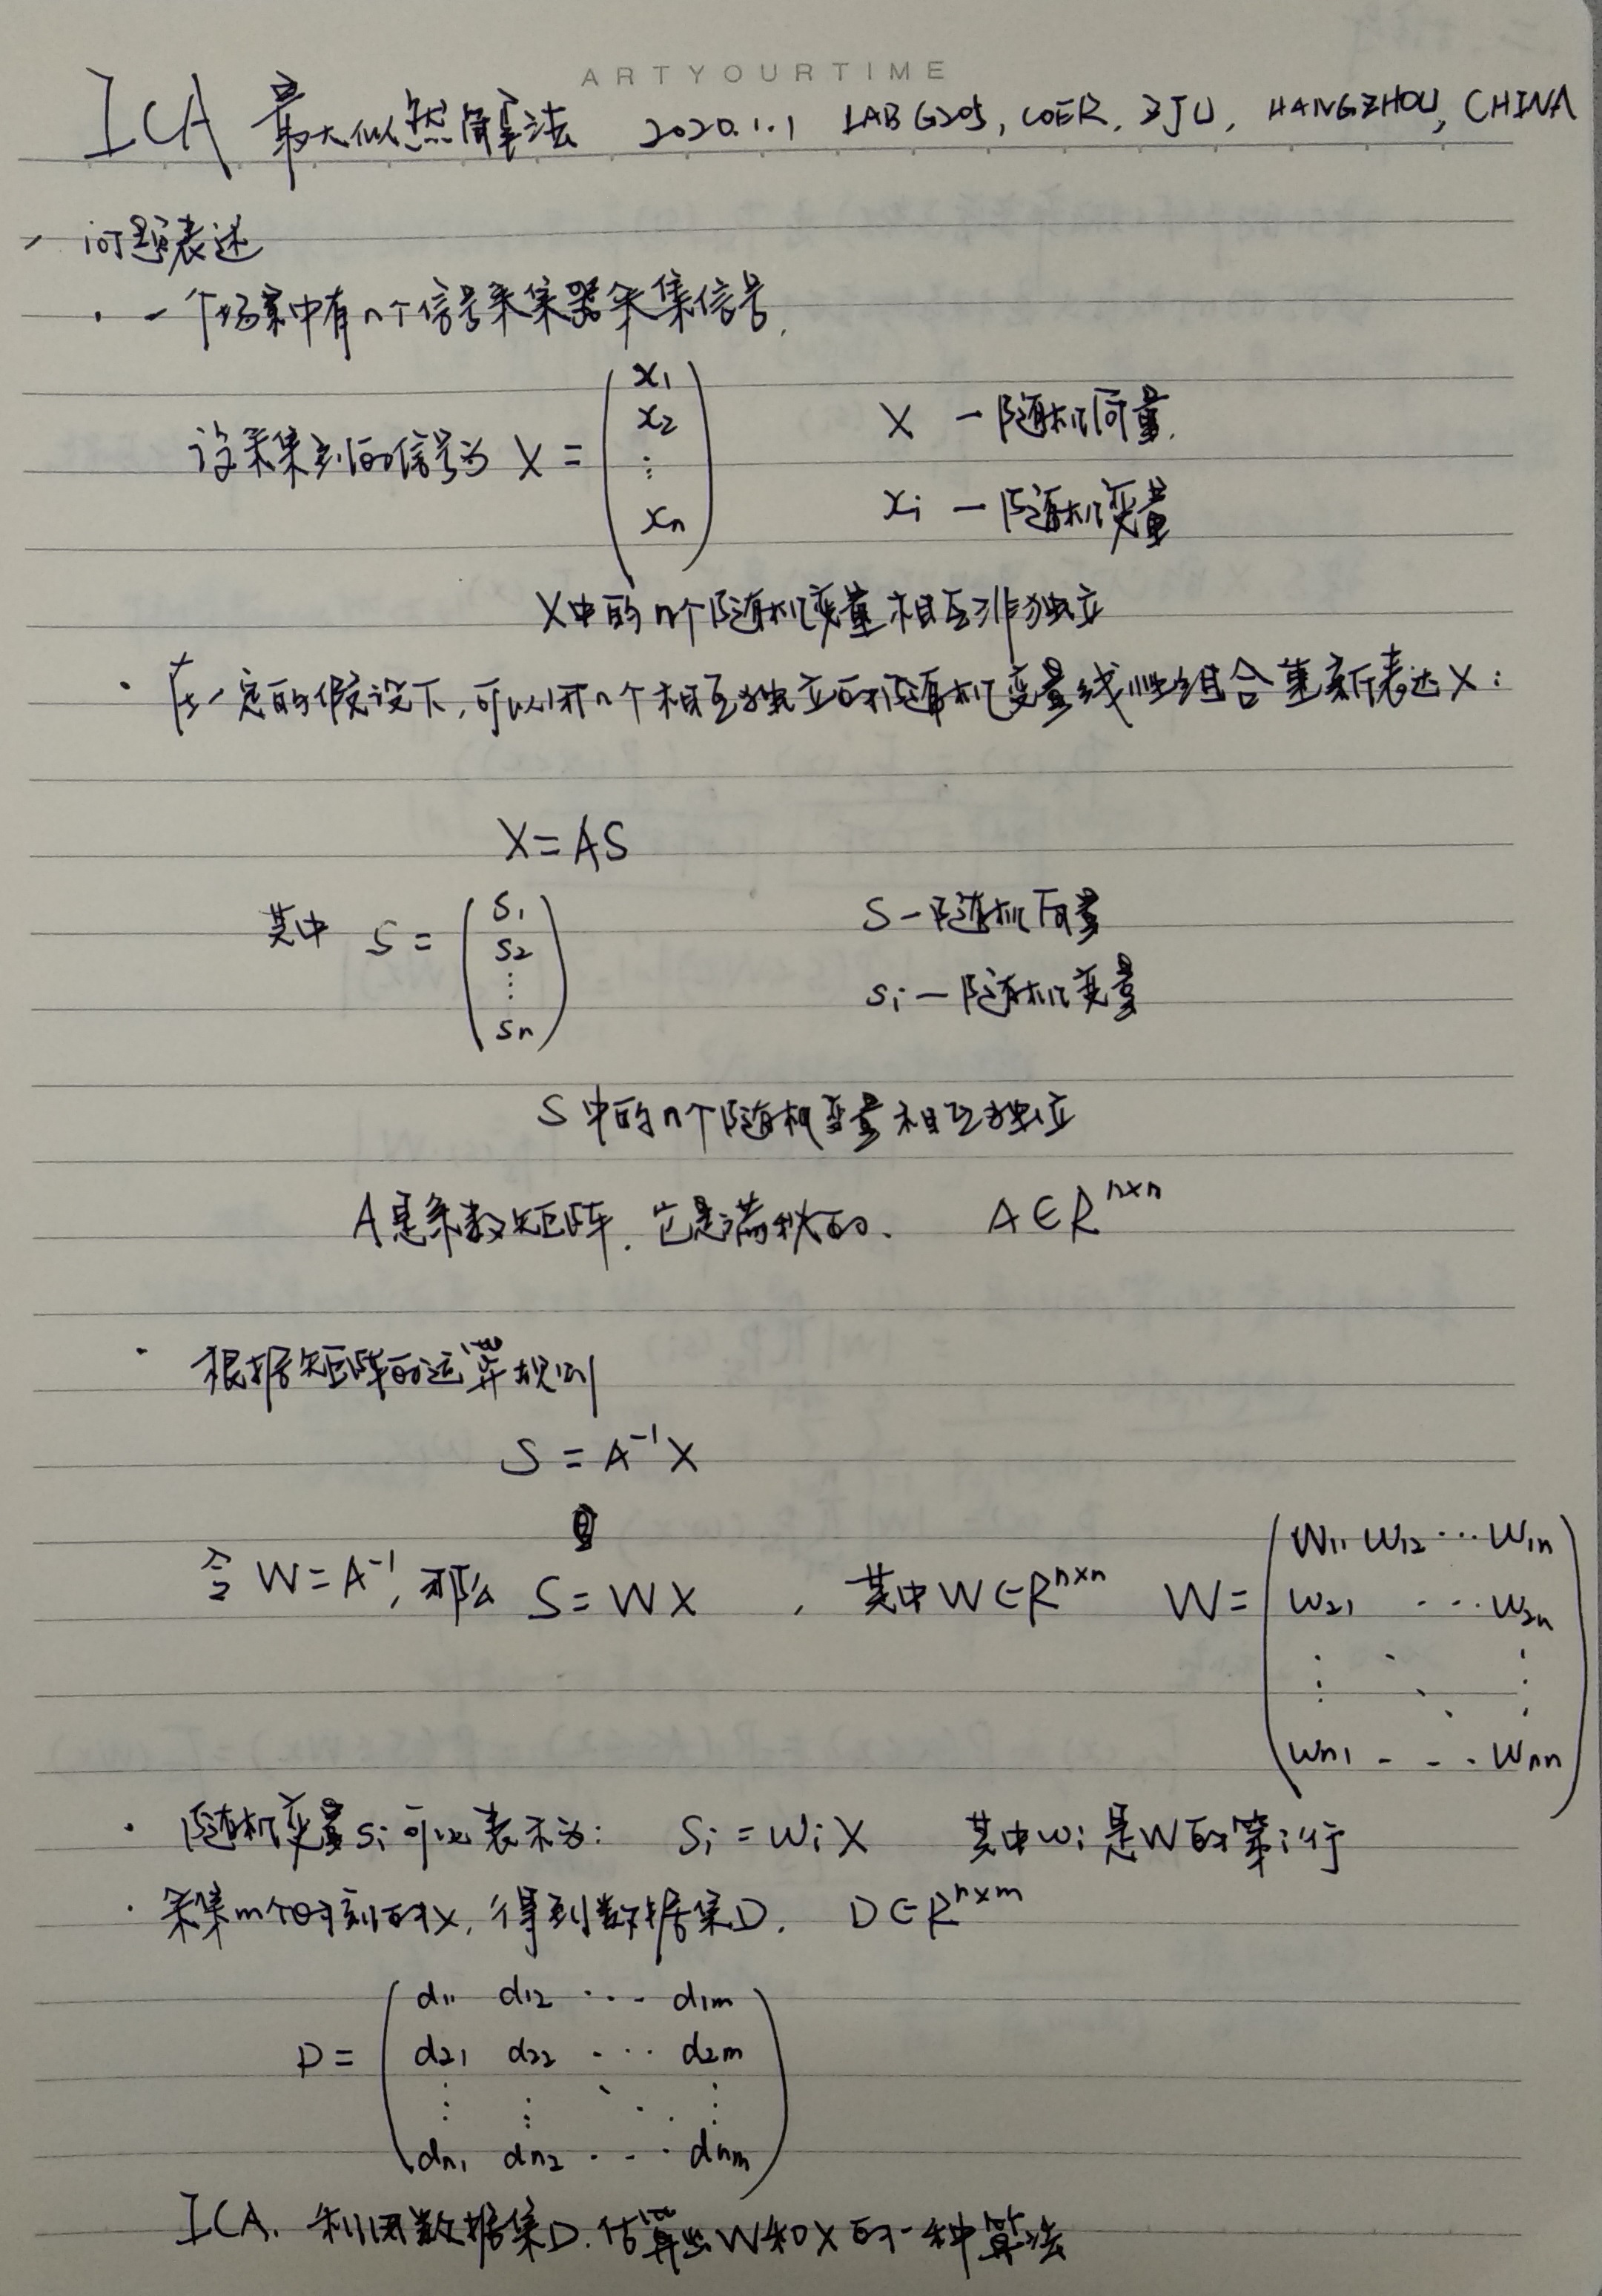 ARTYOURTIME
ICA 最大似然算法 2020.1.1 LAB G205, COER, ZJU, HANGZHOU, CHINA
一 问题表述
· 一个场景中有n个信号采集器采集信号,
设采集到的信号为 X = (x1 x2 ⋮ xn) X — 随机向量.
xi — 随机变量
X中的n个随机变量相互非独立
· 在一定的假设下,可以用n个相互独立的随机变量线性组合重新表达X:
X = AS
其中 S = (s1 s2 ⋮ sn) S — 随机向量
si — 随机变量
S中的n个随机变量相互独立
A是系数矩阵. 它是满秩的、 A∈R^{n×n}
· 根据矩阵的运算规则
S = A^{-1}X
令 W = A^{-1}, 那么 S = WX , 其中W∈R^{n×n} W = (w11 w12 ⋯ w1n
w21 ⋯ w2n
⋮ ⋱ ⋮
wn1 ⋯ wnn)
· 随机变量si可以表示为: si = wiX 其中wi是W的第i行
· 采集m个时刻的X, 得到数据集D. D∈R^{n×m}
D = (d11 d12 ⋯ d1m
d21 d22 ⋯ d2m
⋮ ⋮ ⋱ ⋮
dn1 dn2 ⋯ dnm)
ICA. 利用数据集D. 估算出W和X的一种算法